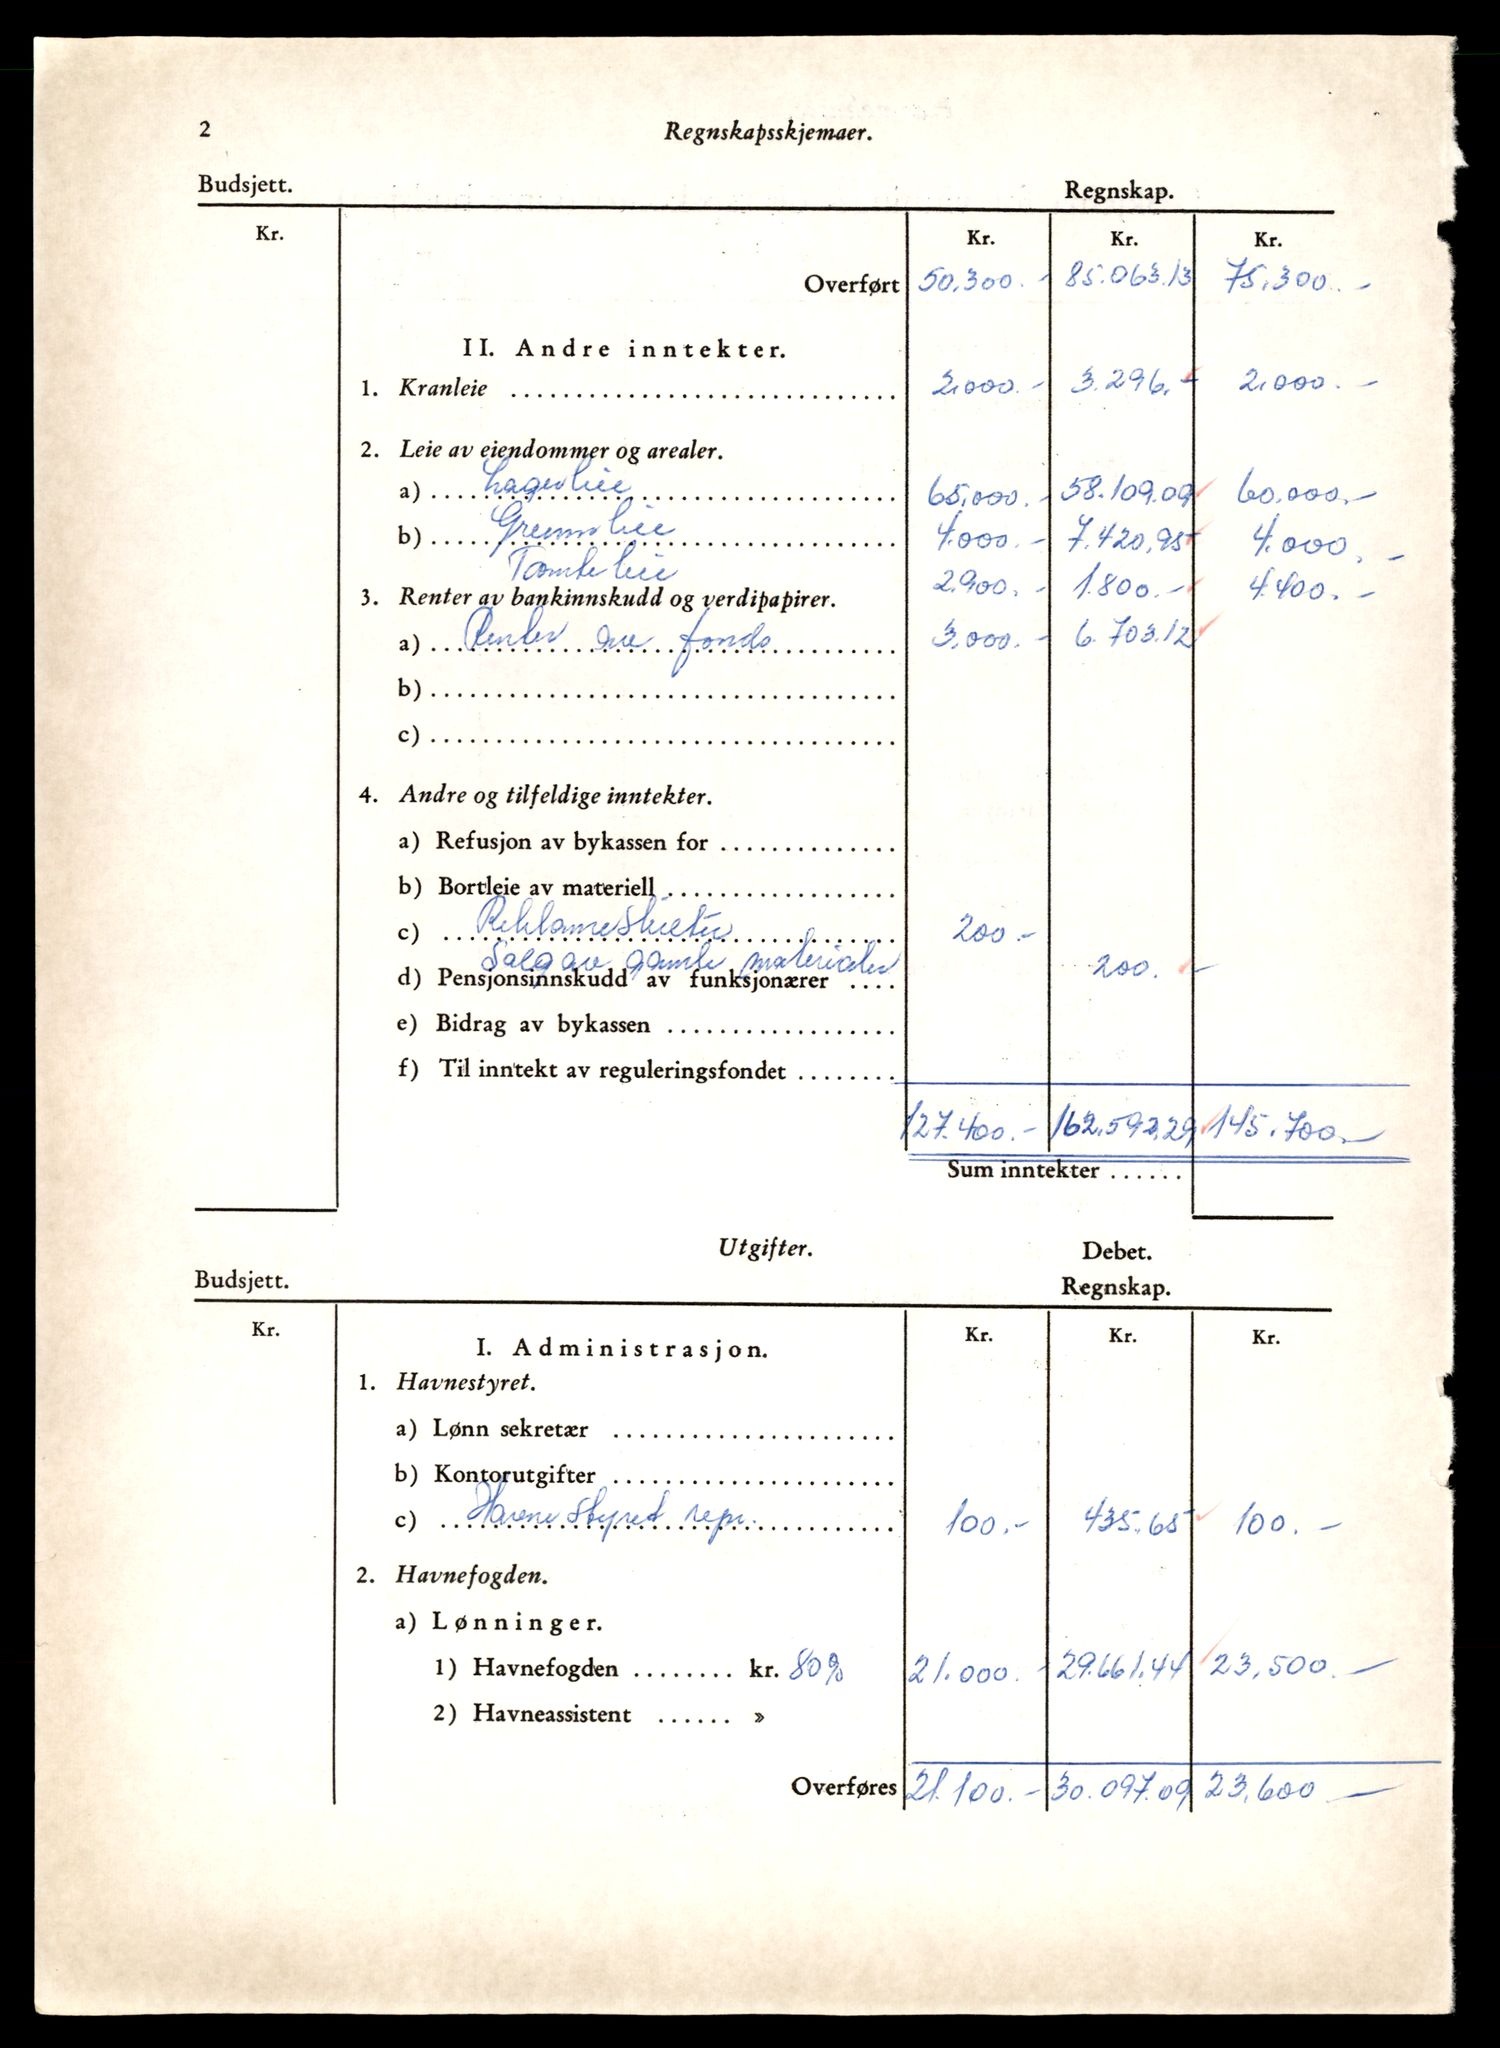 2 Regnskapsskjemaer.
Budsjett. Regnskap.
Kr. Kr. Kr. Kr.
Overført 50.300.- 85.063.13 75.300.-
II. Andre inntekter.
1. Kranleie 2.000.- 3.296.- 2.000.-
2. Leie av eiendommer og arealer.
a) Lagerleie 65.000.- 58.109.09 60.000.-
b) Grunnleie 4.000.- 7.420.95 4.000.-
Tomteleie 2.900.- 1.800.- 4.400.-
3. Renter av bankinnskudd og verdipapirer.
a) Renter av fonds 3.000.- 6.703.12
b)
c)
4. Andre og tilfeldige inntekter.
a) Refusjon av bykassen for
b) Bortleie av materiell
c) Reklameskilter 200.-
Salg av gamle materialer 200.-
d) Pensjonsinnskudd av funksjonærer
e) Bidrag av bykassen
f) Til inntekt av reguleringsfondet
127.400.- 162.592.29 145.700.-
Sum inntekter
Utgifter. Debet.
Budsjett. Regnskap.
Kr. Kr. Kr. Kr.
I. Administrasjon.
1. Havnestyret.
a) Lønn sekretær
b) Kontorutgifter
c) Havnestyret repr. 100.- 435.65 100.-
2. Havnefogden.
a) Lønninger.
1) Havnefogden kr. 80% 21.000.- 29.661.44 23.500.-
2) Havneassistent »
Overføres 21.100.- 30.097.09 23.600.-